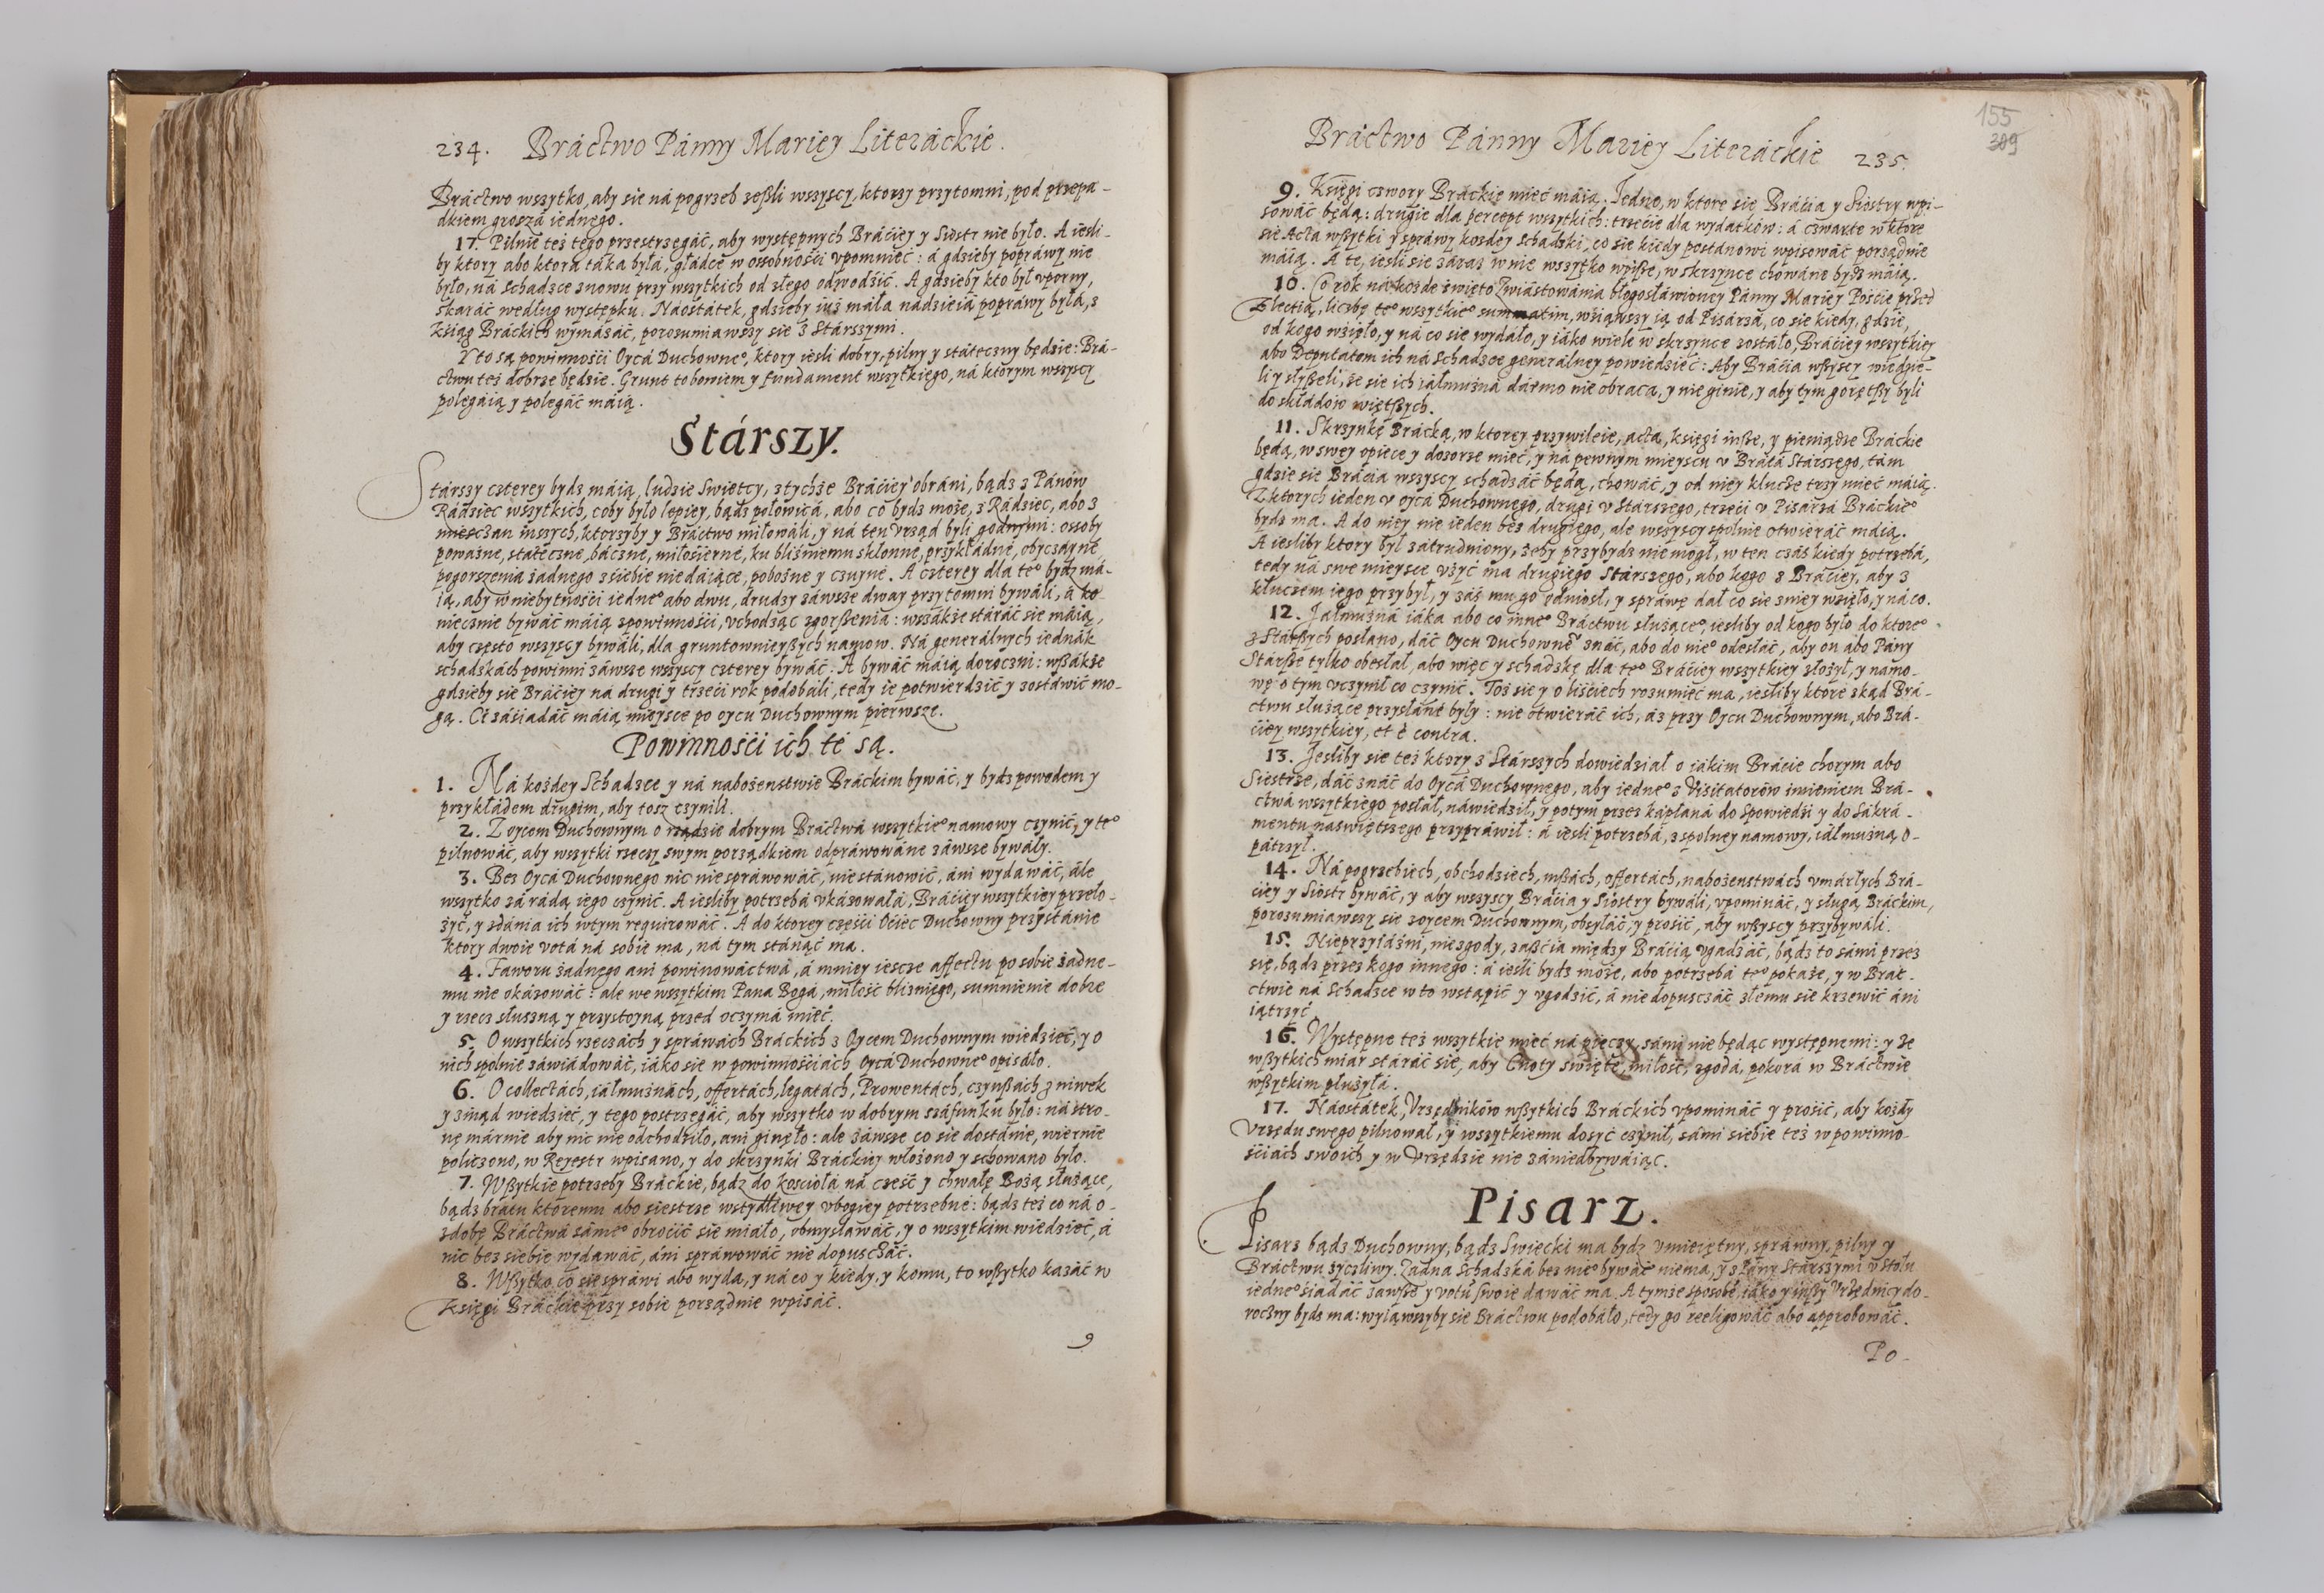 234. Bráctwo Pánny Mariey Literáckie.
Bráctwo wszytko, aby sie ná pogrzeb zeßli wszyscy, ktorzy przytomni, pod przepa-
dkiem groszá iednego.
17. Pilnie też tego przestrzegáć, aby występnych Bráciey y Siostr nie było. A iesli-
by ktory abo ktora táka byłá, głádce w osobności vpomnieć: á gdzieby popráwy nie
było, ná Schadzce znowu przy wszytkich od złego odwodźić. A gdzieby kto był vporny,
skaráć według występku. Náostátek, gdzieby iuż máła nádzieiá popráwy byłá, z
ksiąg Bráckich wymázáć, porozumiawszy sie z Stárszymi.
Y to są powinności Oycá Duchowneº, ktory iesli dobry, pilny y státeczny będzie: Brá-
ctwu też dobrze będzie. Grunt to bowiem y fundament wszytkiego, ná ktorym wszyscy
polegáią y polegáć máią.
Stárszy.
Stárszy czterey bydz máią, ludzie Swietcy, z tychże Bráciey obráni, bądz z Pánow
Rádziec wszytkich, coby było lepiey, bądz połowicá, abo co bydz może, z Rádziec, abo z
miesczan inszych, ktorzyby y Bráctwo miłowáli, y ná ten vrząd byli godnymi: osoby
poważne, státeczne, báczne, miłosierne, ku bliźniemu skłonne, przykłádne, obyczáyne,
pogorszenia żadnego z siebie niedáiące, pobożne y czuyne. A czterey dla teº bydz má-
ią, aby w niebytności iedneº abo dwu, drudzy záwsze dway przytomni bywáli, á ko-
niecznie bywáć máią z powinności, vchodząc zgorßenia: wszákże stáráć sie máią,
aby często wszyscy bywáli, dla gruntownieyßych namow. Ná generalnych iednák
schadzkách powinni záwsze wszyscy czterey bywáć. A bywáć máią doroczni: wßákże
gdzieby sie Bráciey ná drugi y trzeci rok podobáli, tedy ie potwierdzić y zostáwić mo-
gą. Ci zásiadáć máią mieysce po oycu Duchownym pierwsze.
Powinności ich te są.
1. Ná kożdey Schadzce y ná nabożenstwie Bráckim bywáć, y bydz powodem y
przykłádem drugim, aby tosz czynili.
2. Z oycem Duchownym o rządzie dobrym Bráctwá wszytkieº namowy czynić, y teº
pilnowáć, aby wszytki rzeczy swym porządkiem odpráwowáne záwsze bywáły.
3. Bez Oycá Duchownego nic niespráwowáć, nie stánowić, áni wydawáć, ále
wszytko zá radą iego czynić. A iesliby potrzebá vkázowałá, Bráciey wszytkiey przeło-
żyć, y zdánia ich w tym requirowáć. A do ktorey części Oćiec Duchowny przystánie
ktory dwoie votá ná sobie ma, ná tym stánąć ma.
4. Faworu żadnego ani powinowáctwá, á mniey iescze affectu po sobie żadne-
mu nie okázowáć: ale we wszytkim Pana Bogá, miłość bliźniego, sumnienie dobre
y rzecz słuszną y przystoyną przed oczymá mieć.
5. O wszytkich rzeczách y spráwách Bráckich z Oycem Duchownym wiedzieć, y o
nich spolnie záwiádowáć, iáko sie w powinnościách Oycá Duchowneº opisáło.
6. O collectách, iáłmużnách, offertách, legatách, Prowentách, czynßách z niwek
y zinąd wiedzieć, y tego postrzegáć, aby wszytko w dobrym száfunku było: ná stro-
nę márnie aby nic nie odchodziło, ani ginęło: ale záwsze co sie dostánie, wiernie
policzono, w Reiestr wpisano, y do skrzynki Bráckiey włożono y schowano było.
7. Wßytkie potrzeby Bráckie, bądz do kościołá ná cześć y chwałę Bożą służące,
bądz brátu ktoremu abo siestrze wstydliwey vbogiey potrzebne: bądz też co ná o-
zdobę Bráctwá sámeº obrocić sie miáło, obmysláwáć, y o wszytkim wiedzieć, á
nic bez siebie wydawáć, áni spráwowáć nie dopusczáć.
8. Wßytko co sie spráwi abo wyda, y ná co y kiedy, y komu, to wßytko kazáć w
Księgi Bráckie przy sobie porządnie wpisáć.
9
Bráctwo Pánny Mariey Literáckie 235.
155
309
9. Księgi czwory Bráckie mieć máią. Jedne, w ktore sie Bráćia y Siostry wpi-
sowáć będą: drugie dla percept wszytkich: trzecie dla wydatkow: á czwarte w ktore
sie Acta wßytki y spráwy kożdey Schadzki, co sie kiedy postánowi wpisowáć porządnie
máią. A te, iesli sie záraz w nie wszytko wpiße, w skrzynce chowáne bydz máią.
10. Co rok ná kożde święto Zwiástowánia błogosłáwioney Pánny Mariey Poscie przed
Electią, liczbę teº wszytkieº summatim, wziąwszy ią od Pisárzá, co sie kiedy, gdzie,
od kogo wzięło, y ná co sie wydáło, y iáko wiele w skrzynce zostáło, Bráciey wszytkiey
abo Deputatom ich ná Schadzce generalney powiedzieć: Aby Bráćia wßyscy wiedzie-
li y słyßeli, że sie ich iałmużná dármo nie obraca, y nie ginie, y aby tym goręt­ßy byli
do składow więtßych.
11. Skrzynkę Brácką, w ktorey przywileie, acta, księgi inße, y pieniądze Bráckie
będą, w swey opiece y dozorze mieć, y ná pewnym mieyscu v Bráta Stárszego, tám
gdzie sie Bráćia wszyscy schadzáć będą, chowáć, y od niey klucze trzy mieć máią.
Z ktorych ieden v oycá Duchownego, drugi v Stárszego, trzeci v Pisárzá Bráckieº
bydz ma. A do niey nie ieden bez drugiego, ale wszyscy spolnie otwieráć máią.
A iesliby ktory był zátrudniony, żeby przybydz nie mogł, w ten czás kiedy potrzebá,
tedy ná swe mieysce vżyć ma drugiego Stárszego, abo kogo z Bráciey, aby z
kluczem iego przybył, y záś mu go odniosł, y spráwę dał co sie z niey wzięło, y ná co.
12. Jałmużná iáka abo co inneº Bráctwu służąceº, iesliby od kogo było do ktoreº
z Stárßych posłano, dáć Oycu Duchownemº znáć, abo do nieº odesłáć, aby on abo Pány
Stárße tylko obesłał, abo więc y schadzkę dla teº Bráciey wszytkiey złożył, y namo-
wę o tym vczynił co czynić. Toż sie y o liściech rozumieć ma, iesliby ktore skąd Brá-
ctwu służące przysłáne były: nie otwieráć ich, áż przy Oycu Duchownym, abo Brá-
ciey wszytkiey, et è contra.
13. Jesliby sie też ktory z Stárszych dowiedział o iákim Bráćie chorym abo
Siestrze, dáć znáć do Oycá Duchownego, aby iedneº z Visitatorow imieniem Brá-
ctwá wszytkiego posłał, náwiedził, y potym przez kápłaná do Spowiedzi y do Sákrá-
mentu naświętszego przypráwił: á iesli potrzebá, z spolney namowy, iáłmużną o-
pátrzył.
14. Ná pogrzebiech, obchodziech, mßách, offertách, nabożenstwách vmárłych Brá-
ciey y Siostr bywáć, y aby wszyscy Bráćia y Siostry bywáli, vpomináć, y sługą Bráckim,
porozumiawszy sie z oycem Duchownym, obsyłáć, y prosić, aby wßyscy przybywáli.
15. Nieprzyiáźni, niezgody, zaßćia między Bráćią vgadzáć, bądz to sámi przez
się, bądz przez kogo innego: á iesli bydz może, abo potrzebá teº pokaże, y w Brac-
ctwie ná Schadzce w to wstąpić y vgodzić, á nie dopusczáć złemu sie krzewić áni
iątrzyć.
16. Występne też wszytkie mieć ná pieczy, sámi nie będąc występnemi: y ze
wßytkich miar stáráć sie, aby Cnoty święte, miłość, zgodá, pokorá w Bráctwie
wßytkim płużyłá.
17. Náostátek, Vrzędnikow wßytkich Bráckich vpomináć y prosić, aby kożdy
Vrzędu swego pilnował, y wszytkiemu dosyć czynił, sámi siebie też w powinno-
ściách swoich y w Vrzędzie nie zániedbywáiąc.
Pisarz.
Pisarz bądz Duchowny, bądz Swiecki ma bydz vmieiętny, spráwny, pilny y
Bráctwu życzliwy. Żadna Schadzká bez nieº bywáć niema, y z Pány Stárszymi v stołu
iedneº śiadáć záwße y votu swoie dawáć ma. A tymże sposobem iáko y inßy Vrzędnicy do-
roczny bydz ma: wyiąwszyby sie Bráctwu podobáło, tedy go reeligowáć abo approbowáć.
Po-